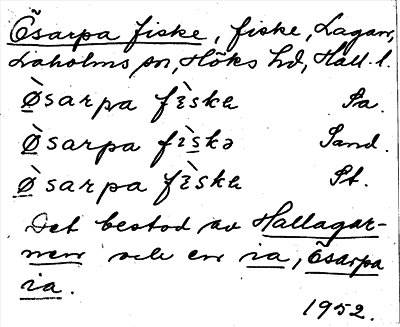 Ösarpa fiske, fiske, Lagan,
Laholms sn, Höks hd, Hall. l.
Ø̀sarpa fìska Sa.
Ø̀sarpa fìskə Sand.
Ø̀sarpa fìska St.
Det bestod av Hallagar-
nen och en ia, Ösarpa
ia.
1952.